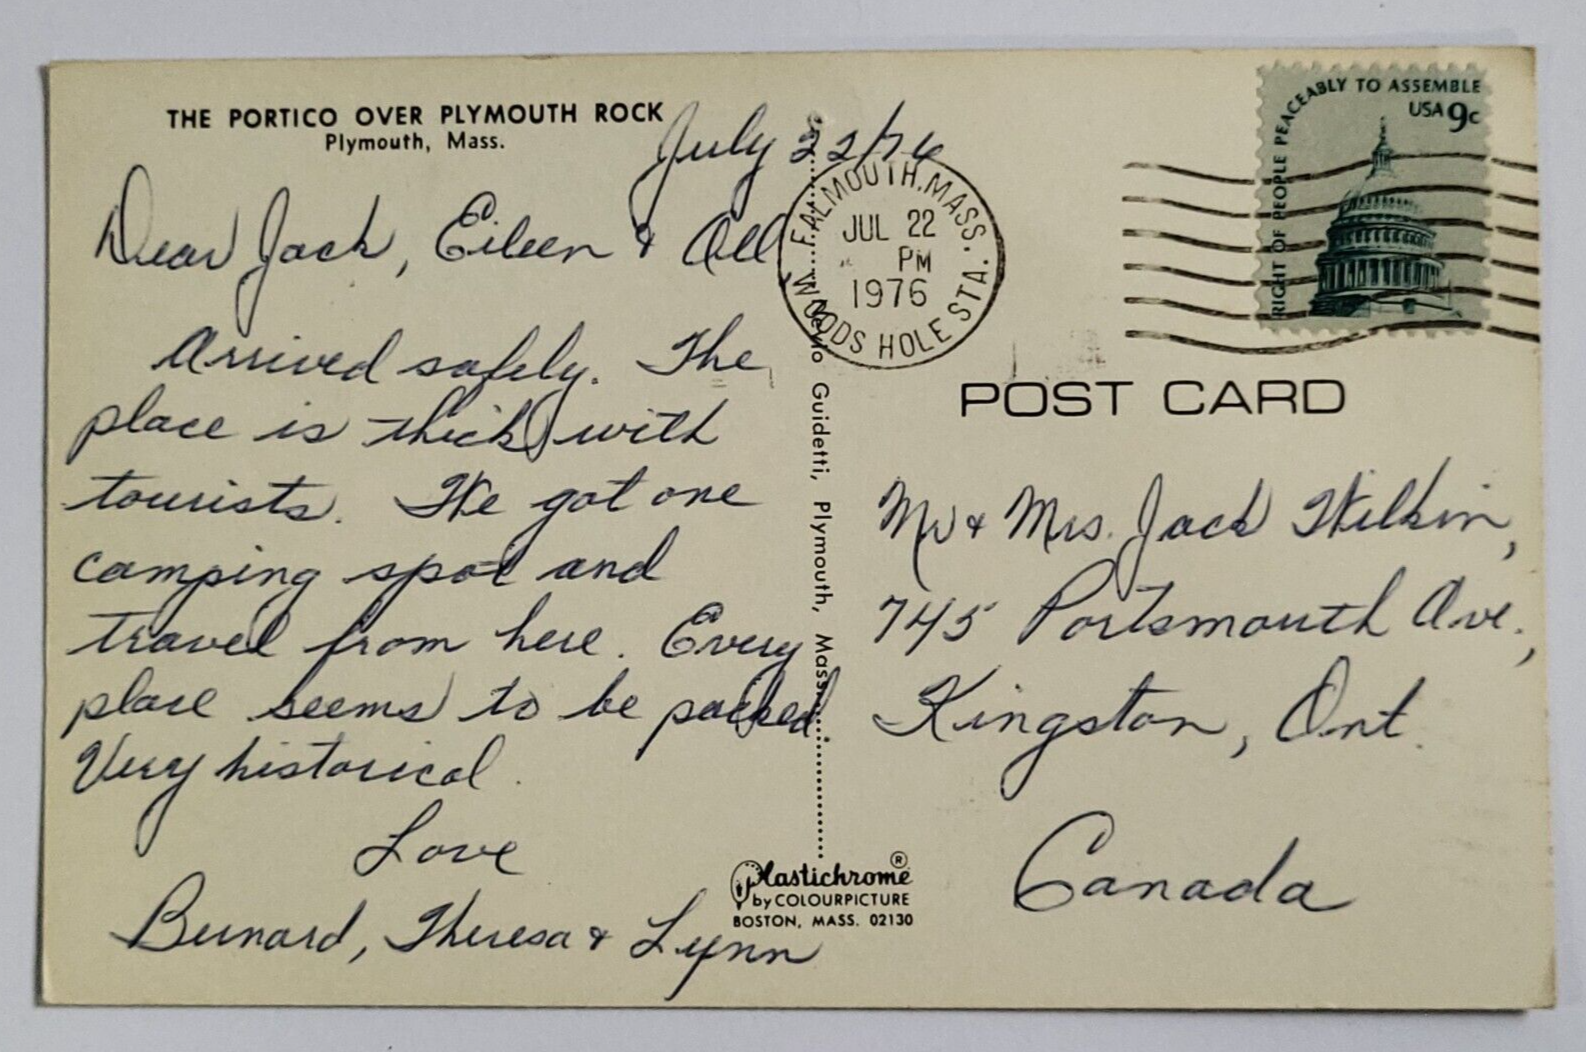 THE PORTICO OVER PLYMOUTH ROCK
Plymouth, Mass.
July 22/76
Dear Jack, Eileen & All
Arrived safely. The
place is thick with
tourists. We got one
camping spot and
travel from here. Every
place seems to be packed.
Very historical.
Love
Bernard, Theresa & Lynn
Guidetti, Plymouth, Mass.
Plastichrome ®
by COLOURPICTURE
BOSTON, MASS. 02130
FALMOUTH, MASS.
JUL 22
PM
1976
WOODS HOLE STA.
RIGHT OF PEOPLE PEACEABLY TO ASSEMBLE
USA 9c
POST CARD
Mr & Mrs. Jack Wilkin,
745 Portsmouth Ave.,
Kingston, Ont.
Canada